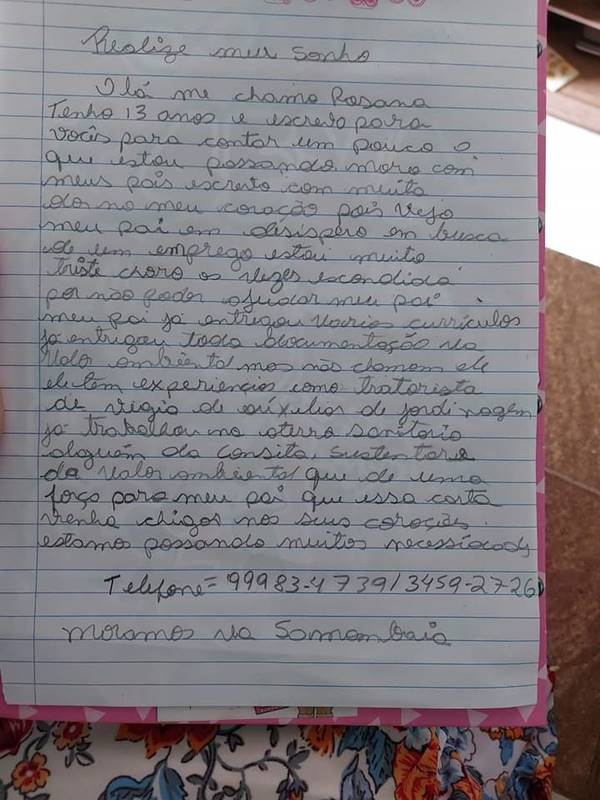 Realize meu sonho
Olá me chamo Rosana
Tenho 13 anos e escrevo para
vocês para contar um pouco o
que estou passando moro com
meus pais escrevo com muita
dor no meu coração pois vejo
meu pai em disispero em busca
de um emprego estou muito
triste choro os vezes escondida
por não poder ajudar meu pai
meu pai já entregou varios currículos
já entregou toda documentação na
Valor ambiental mas não chamam ele
ele têm experiencias como tratorista
de vigia de aúxilior de jardinagem
já trabalhou no aterro sanitario
alguém da consita, sustentare
da Valor ambiental que de uma
força para meu pai que essa carta
venha chigar nos seus corações.
estamos passando muitas necessidads
Telefone = 99983-4739 / 3459-2726
moramos na Samambaia